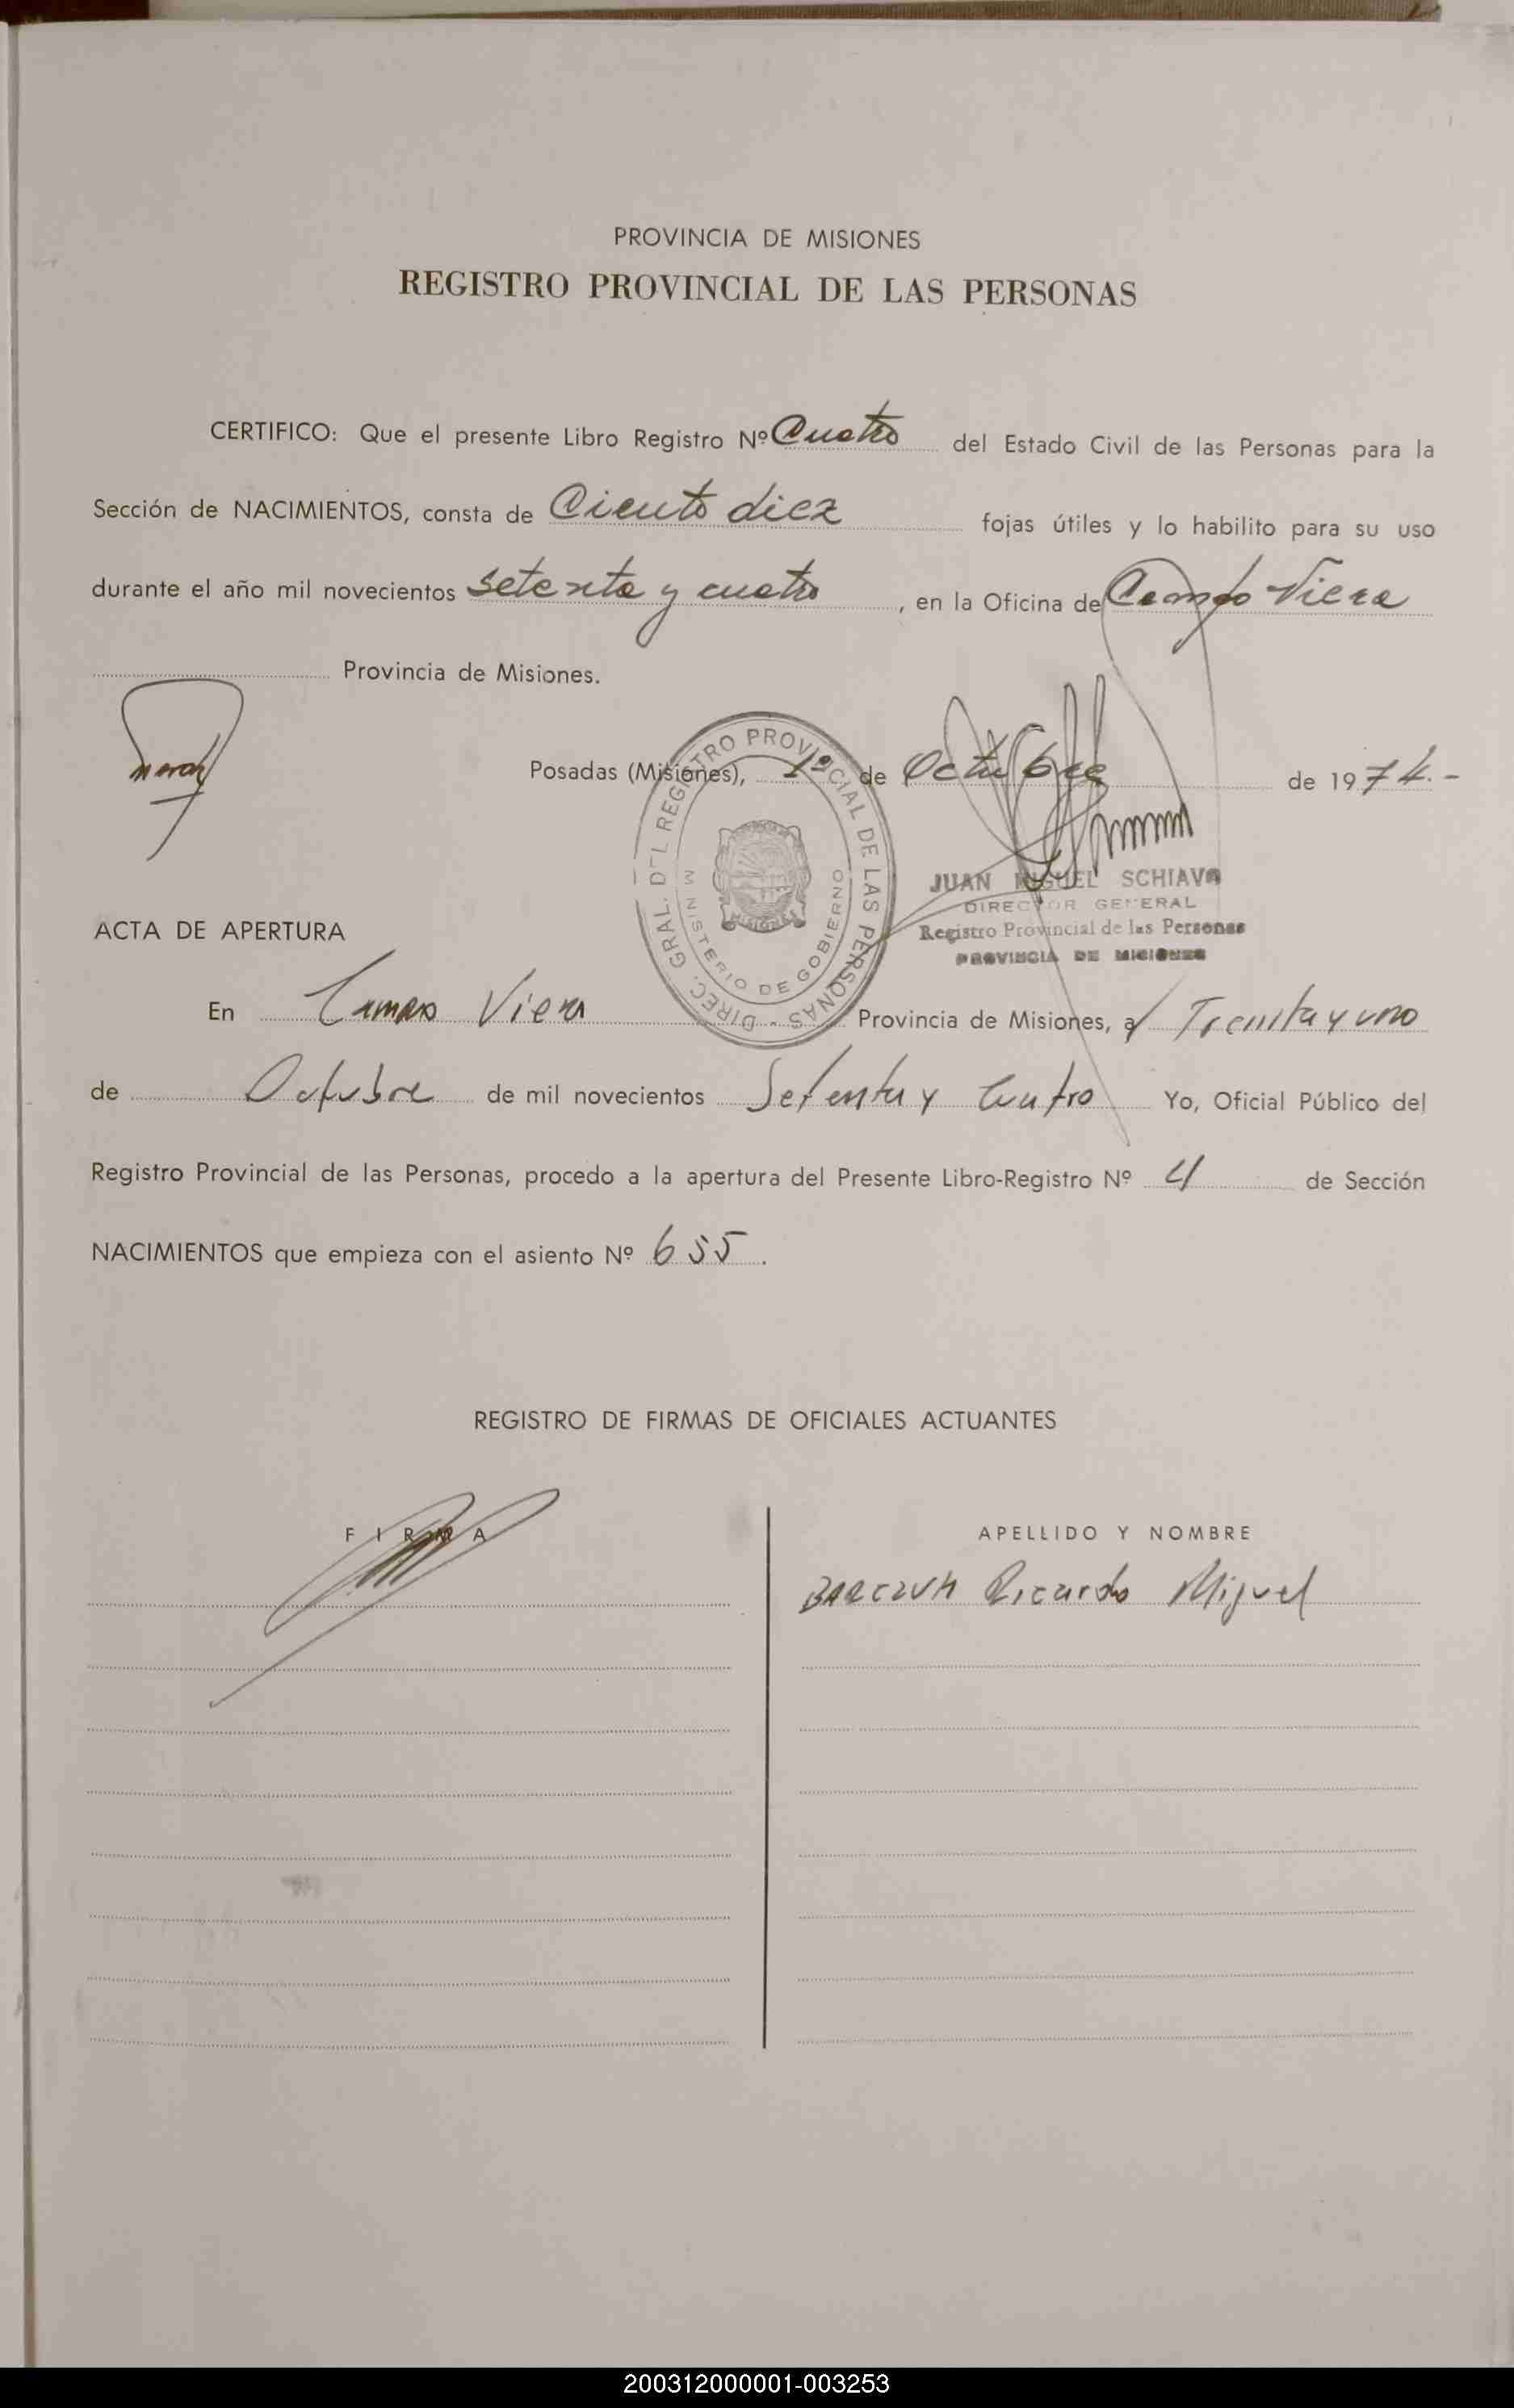 PROVINCIA DE MISIONES
REGISTRO PROVINCIAL DE LAS PERSONAS
CERTIFICO: Que el presente Libro Registro Nº Cuatro del Estado Civil de las Personas para la
Sección de NACIMIENTOS, consta de Ciento diez fojas útiles y lo habilito para su uso
durante el año mil novecientos setenta y cuatro, en la Oficina de Campo Viera
Provincia de Misiones.
Posadas (Misiones), 1º de Octubre de 1974.-
DIREC. GRAL. DEL REGISTRO PROVINCIAL DE LAS PERSONAS -
MINISTERIO DE GOBIERNO
MISIONES
JUAN MIGUEL SCHIAVO
DIRECTOR GENERAL
Registro Provincial de las Personas
PROVINCIA DE MISIONES
ACTA DE APERTURA
En Campo Viera Provincia de Misiones, a Treinta y uno
de Octubre de mil novecientos Setenta y Cuatro Yo, Oficial Público del
Registro Provincial de las Personas, procedo a la apertura del Presente Libro-Registro Nº 4 de Sección
NACIMIENTOS que empieza con el asiento Nº 655.
REGISTRO DE FIRMAS DE OFICIALES ACTUANTES
FIRMA
APELLIDO Y NOMBRE
Ricardo Miguel
200312000001-003253